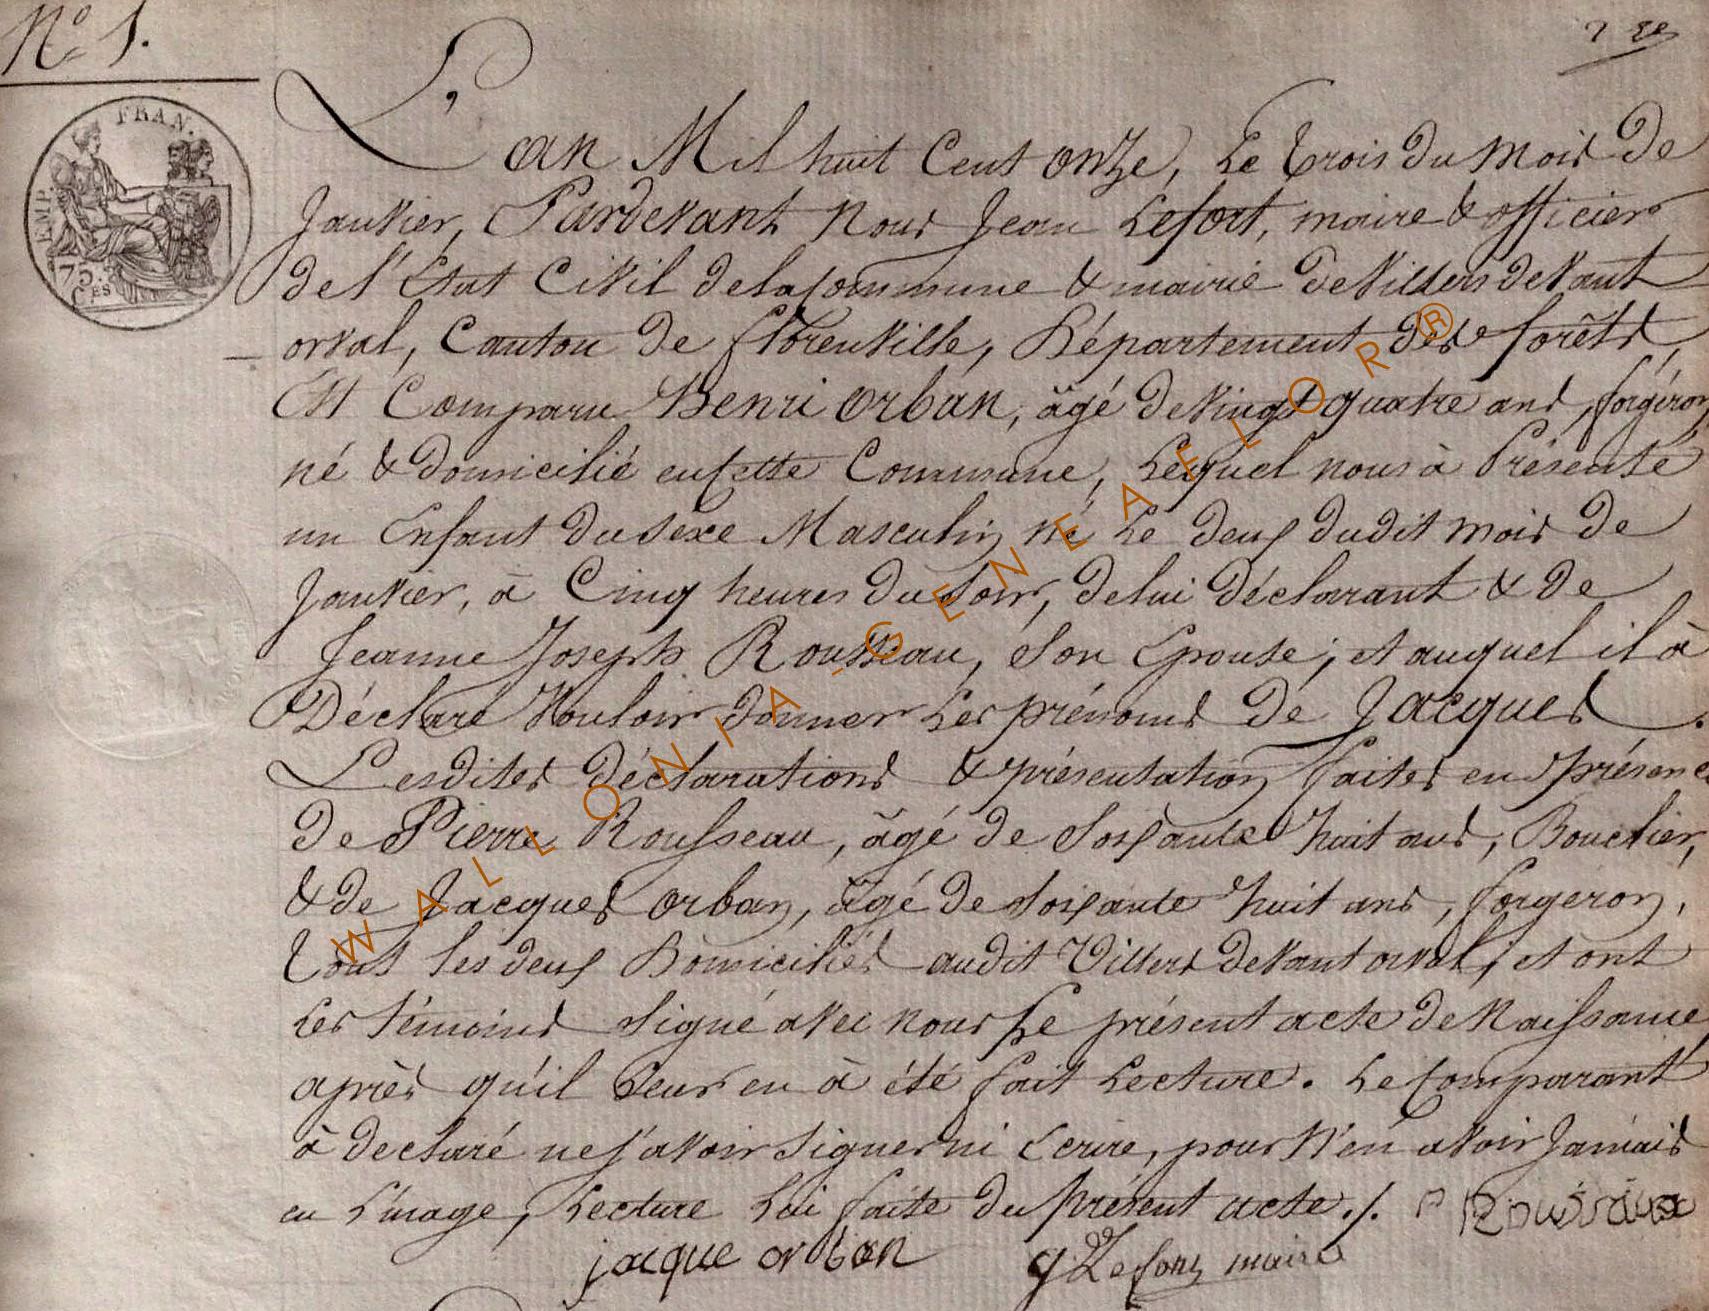 N.º 1.
FRAN.
EMP.
75.
CES
L'an Mil huit Cent onze, Le trois du mois de
Janvier, Pardevant Nous Jean Lefort, maire & officier
de l'Etat Civil de la Commune & mairie de Villers devant
orval, Canton de florenville, Département des forêts
Est Comparu Henri Orban, âgé de vingt quatre ans, forgéron,
né & domicilié en Cette Commune, Lequel nous à Présenté
un Enfant du Sexe Masculin né Le deux dudit mois de
Janvier, à Cinq heures du Soir, de lui Déclarant & de
Jeanne Joseph Rousseau, Son Epouse, et auquel il à
Déclaré Vouloir donner Les prénoms de Jacques.
Lesdites déclarations & présentation faites en présence
de Pierre Rousseau, âgé de Soixante huit ans, Bouclier,
& de Jacques Orban, âgé de Soixante huit ans, forgéron,
tous les deux Domiciliés audit Villers devant orval, et ont
Les témoins Signé avec nous Le présent acte de Naissance
après qu'il Leur en à été fait Lecture. Le Comparant
à declaré ne Savoir Signer ni Ecrire, pour N'en avoir Jamais
eu L'usage, Lecture Lui faite du Présent acte./. P Rousseaux
jacque orban J Lefort maire
WALLONIA-GENEAFLOR®